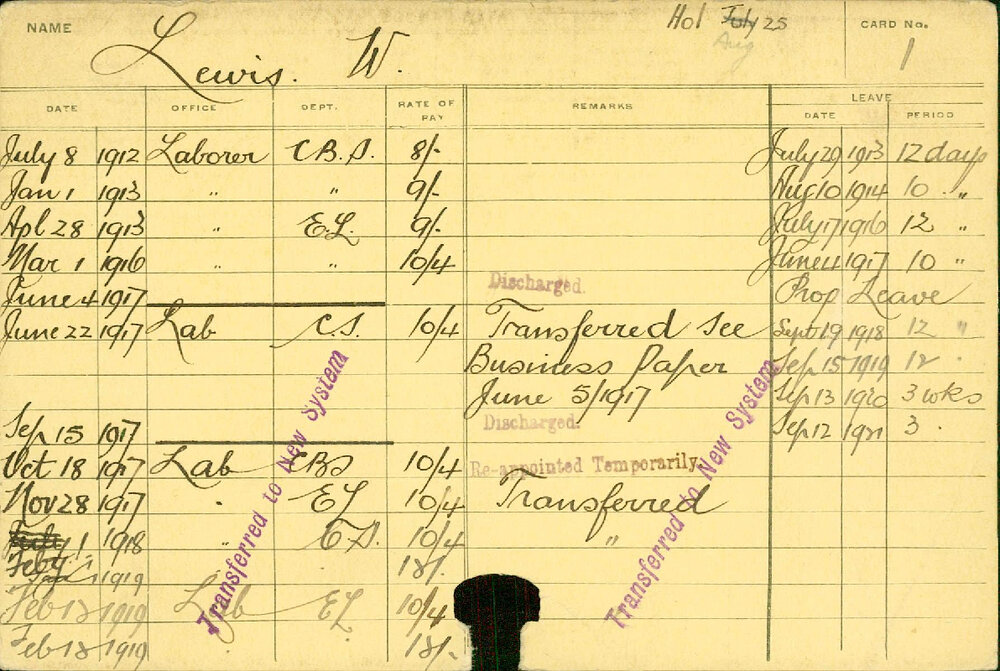 NAME Lewis. W. Hol July 25 CARD No.
Aug 1
DATE OFFICE DEPT. RATE OF PAY REMARKS LEAVE
DATE PERIOD
July 8 1912 Laborer C.B.S. 8/- July 29 1913 12 days
Jan 1 1913 " " 9/- Aug 10 1914 10 "
Apl 28 1913 " E.L. 9/- July 17 1916 12 "
Mar 1 1916 " " 10/4 June 4 1917 10 "
June 4 1917 Discharged. Prop Leave
June 22 1917 Lab C.S. 10/4 Transferred See Sept 19 1918 12 "
Business Paper Sep 15 1919 12 "
June 5/1917 Sep 13 1920 3 wks
Sep 15 1917 Discharged. Sep 12 1921 3 "
Oct 18 1917 Lab 10/4 Re-appointed Temporarily.
Nov 28 1917 " EL 10/4 Transferred
1 1918 " 10/4 "
1919 13/-
Feb 1919 Lab EL 10/4
Feb 1919 13/-
Transferred to New System
Transferred to New System